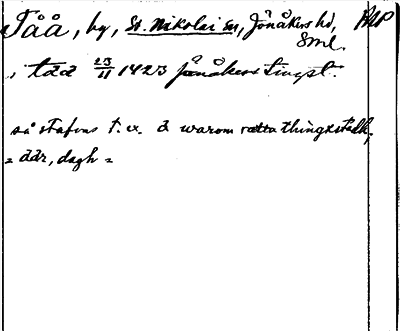 Tåå, by, St. Nikolai sn, Jönåkers hd, RLP
Sml.
, taa 23/11 1423 Jönåkers tingpl.
så stafvas t. ex. a warom rætta thingxstadh,
= där, dagh =